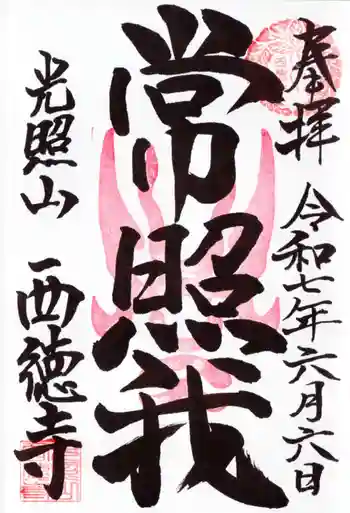 奉拝
令和七年六月六日
常照我
光照山
西徳寺